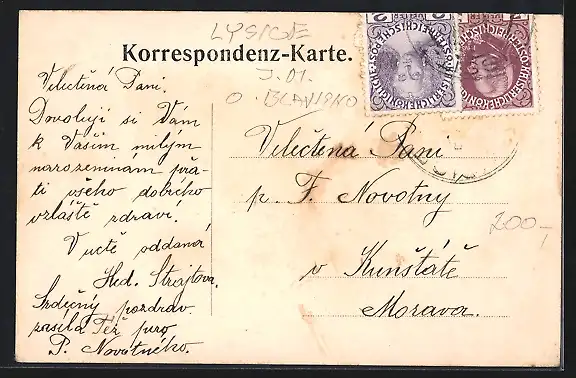 LYSICE
Korrespondenz-Karte.
J. 01.
O BLANSKO
Velectěná Paní.
Dovoluji si Vám
k Vašim milým
narozeninám přá-
ti všeho dobrého
vzláště zdraví.
V úctě oddaná
Hed. Strajtova.
Srdečný pozdrav
zasílá Též pro
P. Novotného.
Velectěná Paní
p. F. Novotny
v Kunštátě
Morava.
200,-